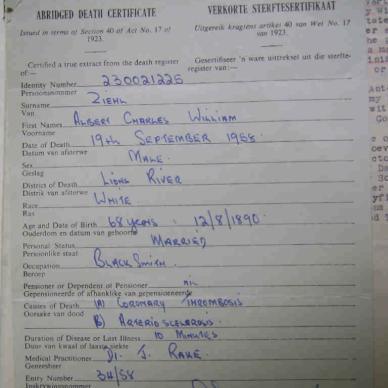 ABRIDGED DEATH CERTIFICATE
Issued in terms of Section 40 of Act No. 17 of
1923.
VERKORTE STERFTESERTIFIKAAT
Uitgereik kragtens artikel 40 van Wet No. 17
van 1923.
Certified a true extract from the death register
of:—
Gesertifiseer 'n ware uittreksel uit die sterfte-
register van:—
Identity Number 230021225
Persoonsnommer
Surname ZIEHL
Van
First Names ALBERT CHARLES WILLIAM
Voorname
Date of Death 19th SEPTEMBER 1958
Datum van afsterwe
Sex MALE.
Geslag
District of Death LIONS RIVER
Distrik van afsterwe
Race WHITE
Ras
Age and Date of Birth 68 YEARS : 12/8/1890.
Ouderdom en datum van geboorte
Personal Status MARRIED
Persoonlike staat
Occupation BLACKSMITH.
Beroep
Pensioner or Dependent of Pensioner nil
Gepensioeneerde of afhanklike van gepensioeneerde
Causes of Death (A) CORONARY THROMBOSIS
Oorsake van dood B) ARTERIOSCELEROSIS.
Duration of Disease or Last Illness 10 MINUTES
Duur van kwaal of laaste siekte
Medical Practitioner Dr. J. RAKE.
Geneesheer
Entry Number 34/58
Inskrywingsnommer